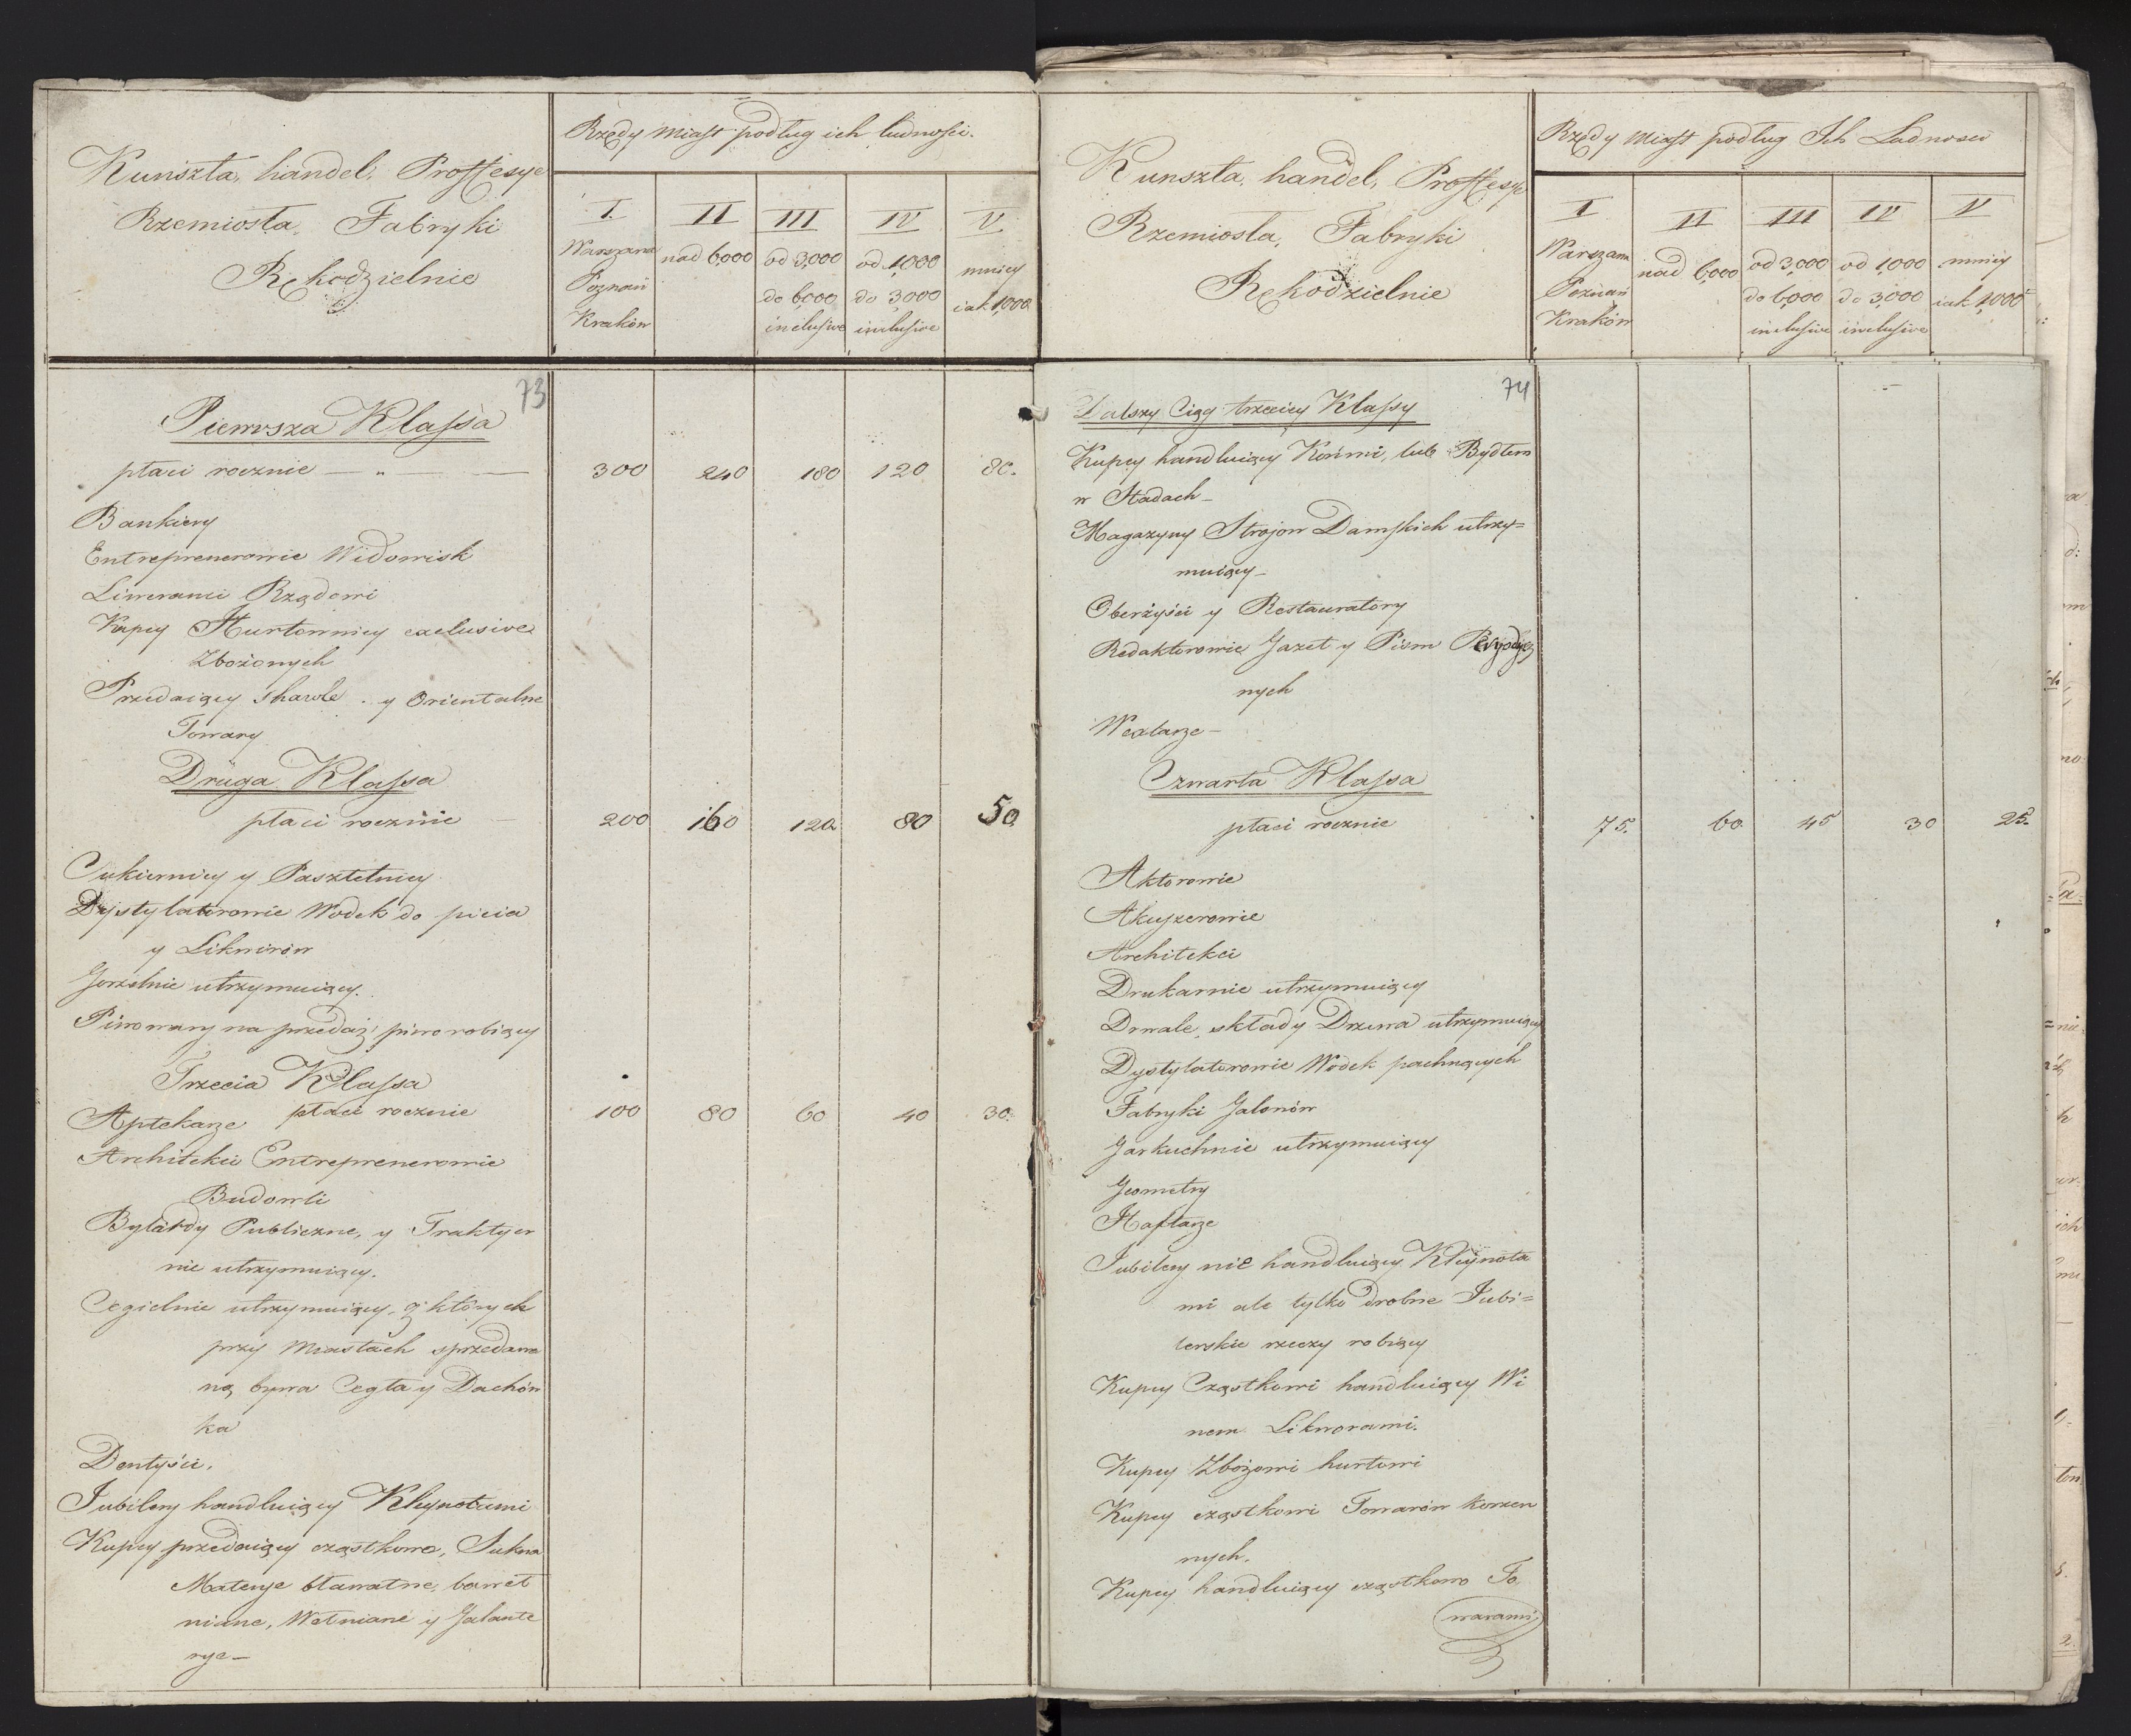 Kunszta, handel, Proffesye
Rzemiosła, Fabryki
Rękodzielnie
Rzędy Miast podług ich ludności.
I. II III IV V.
Warszawa nad 6,000 od 3,000 od 1,000 mnièy
Poznań do 6,000 do 3,000 iak 1,000
Kraków inclusive inclusive
73
Pierwsza Klassa
płaci rocznie — „ — 300 240 180 120 80.
Bankiery
Entreprenerowie Widowisk
Liweranci Rządowi
Kupcy Hurtownicy exclusive
Zbożowych
Przedaiący shawle y Orientalne
Towary
Druga Klassa
płaci rocznie — 200 160 120 80 50
Cukiernicy y Pasztetnicy
Dystylatorowie Wodek do picia
y Likworów
Gorzelnie utrzymuiący.
Piwowary na przedaż piwo robiący
Trzecia Klassa
Aptekarze płaci rocznie 100 80 60 40 30.
Architekci Entreprenerowie
Budowli
Bylardy Publiczne, y Traktyer
nie utrzymuiący.
Cegielnie utrzymuiący, z których
przy Miastach sprzedawa
ną bywa Cegła y Dachów
ka
Dentyści.
Jubilery handluiący Kleynotami
Kupcy przedaiący cząstkowo, Sukna
Materye bławatne, baweł
niane, Wełniane y Galante
rye —
Kunszta, handel, Proffesye
Rzemiosła, Fabryki
Rękodzielnie
Rzędy Miast podług Ich Ludnosci
I II III IV V
Warszawa nad 6,000 od 3,000 od 1,000 mnièy
Poznań do 6,000 do 3,000 iak 1,000
Kraków inclusive inclusive
74
Dalszy Ciąg trzeciey Klassy
Kupcy handluiący Końmi, lub Bydłem
w Stadach —
Magazyny Strojow Damskich utrzy=
muiący —
Oberżyści y Restauratory
Redaktorowie Gazet y Pism Peryodycz
nych
Wexlarze —
Czwarta Klassa
płaci rocznie 75. 60 45 30 25.
Aktorowie
Akuszerowie
Architekci
Drukarnie utrzymuiący
Drwale, składy Drzewa utrzymuiący
Dystylatorowie Wodek pachnących
Fabryki Galonów
Garkuchnie utrzymuiący
Geometry
Haftarze
Jubilery nie handluiący Kleynota
mi ale tylko drobne Jubi=
lerskie rzeczy robiący
Kupcy Cząstkowi handluiący Wi
nem Likworami.
Kupcy Zbożowi hurtowi
Kupcy cząstkowi Towarów korzen
nych.
Kupcy handluiący cząstkowo To
warami